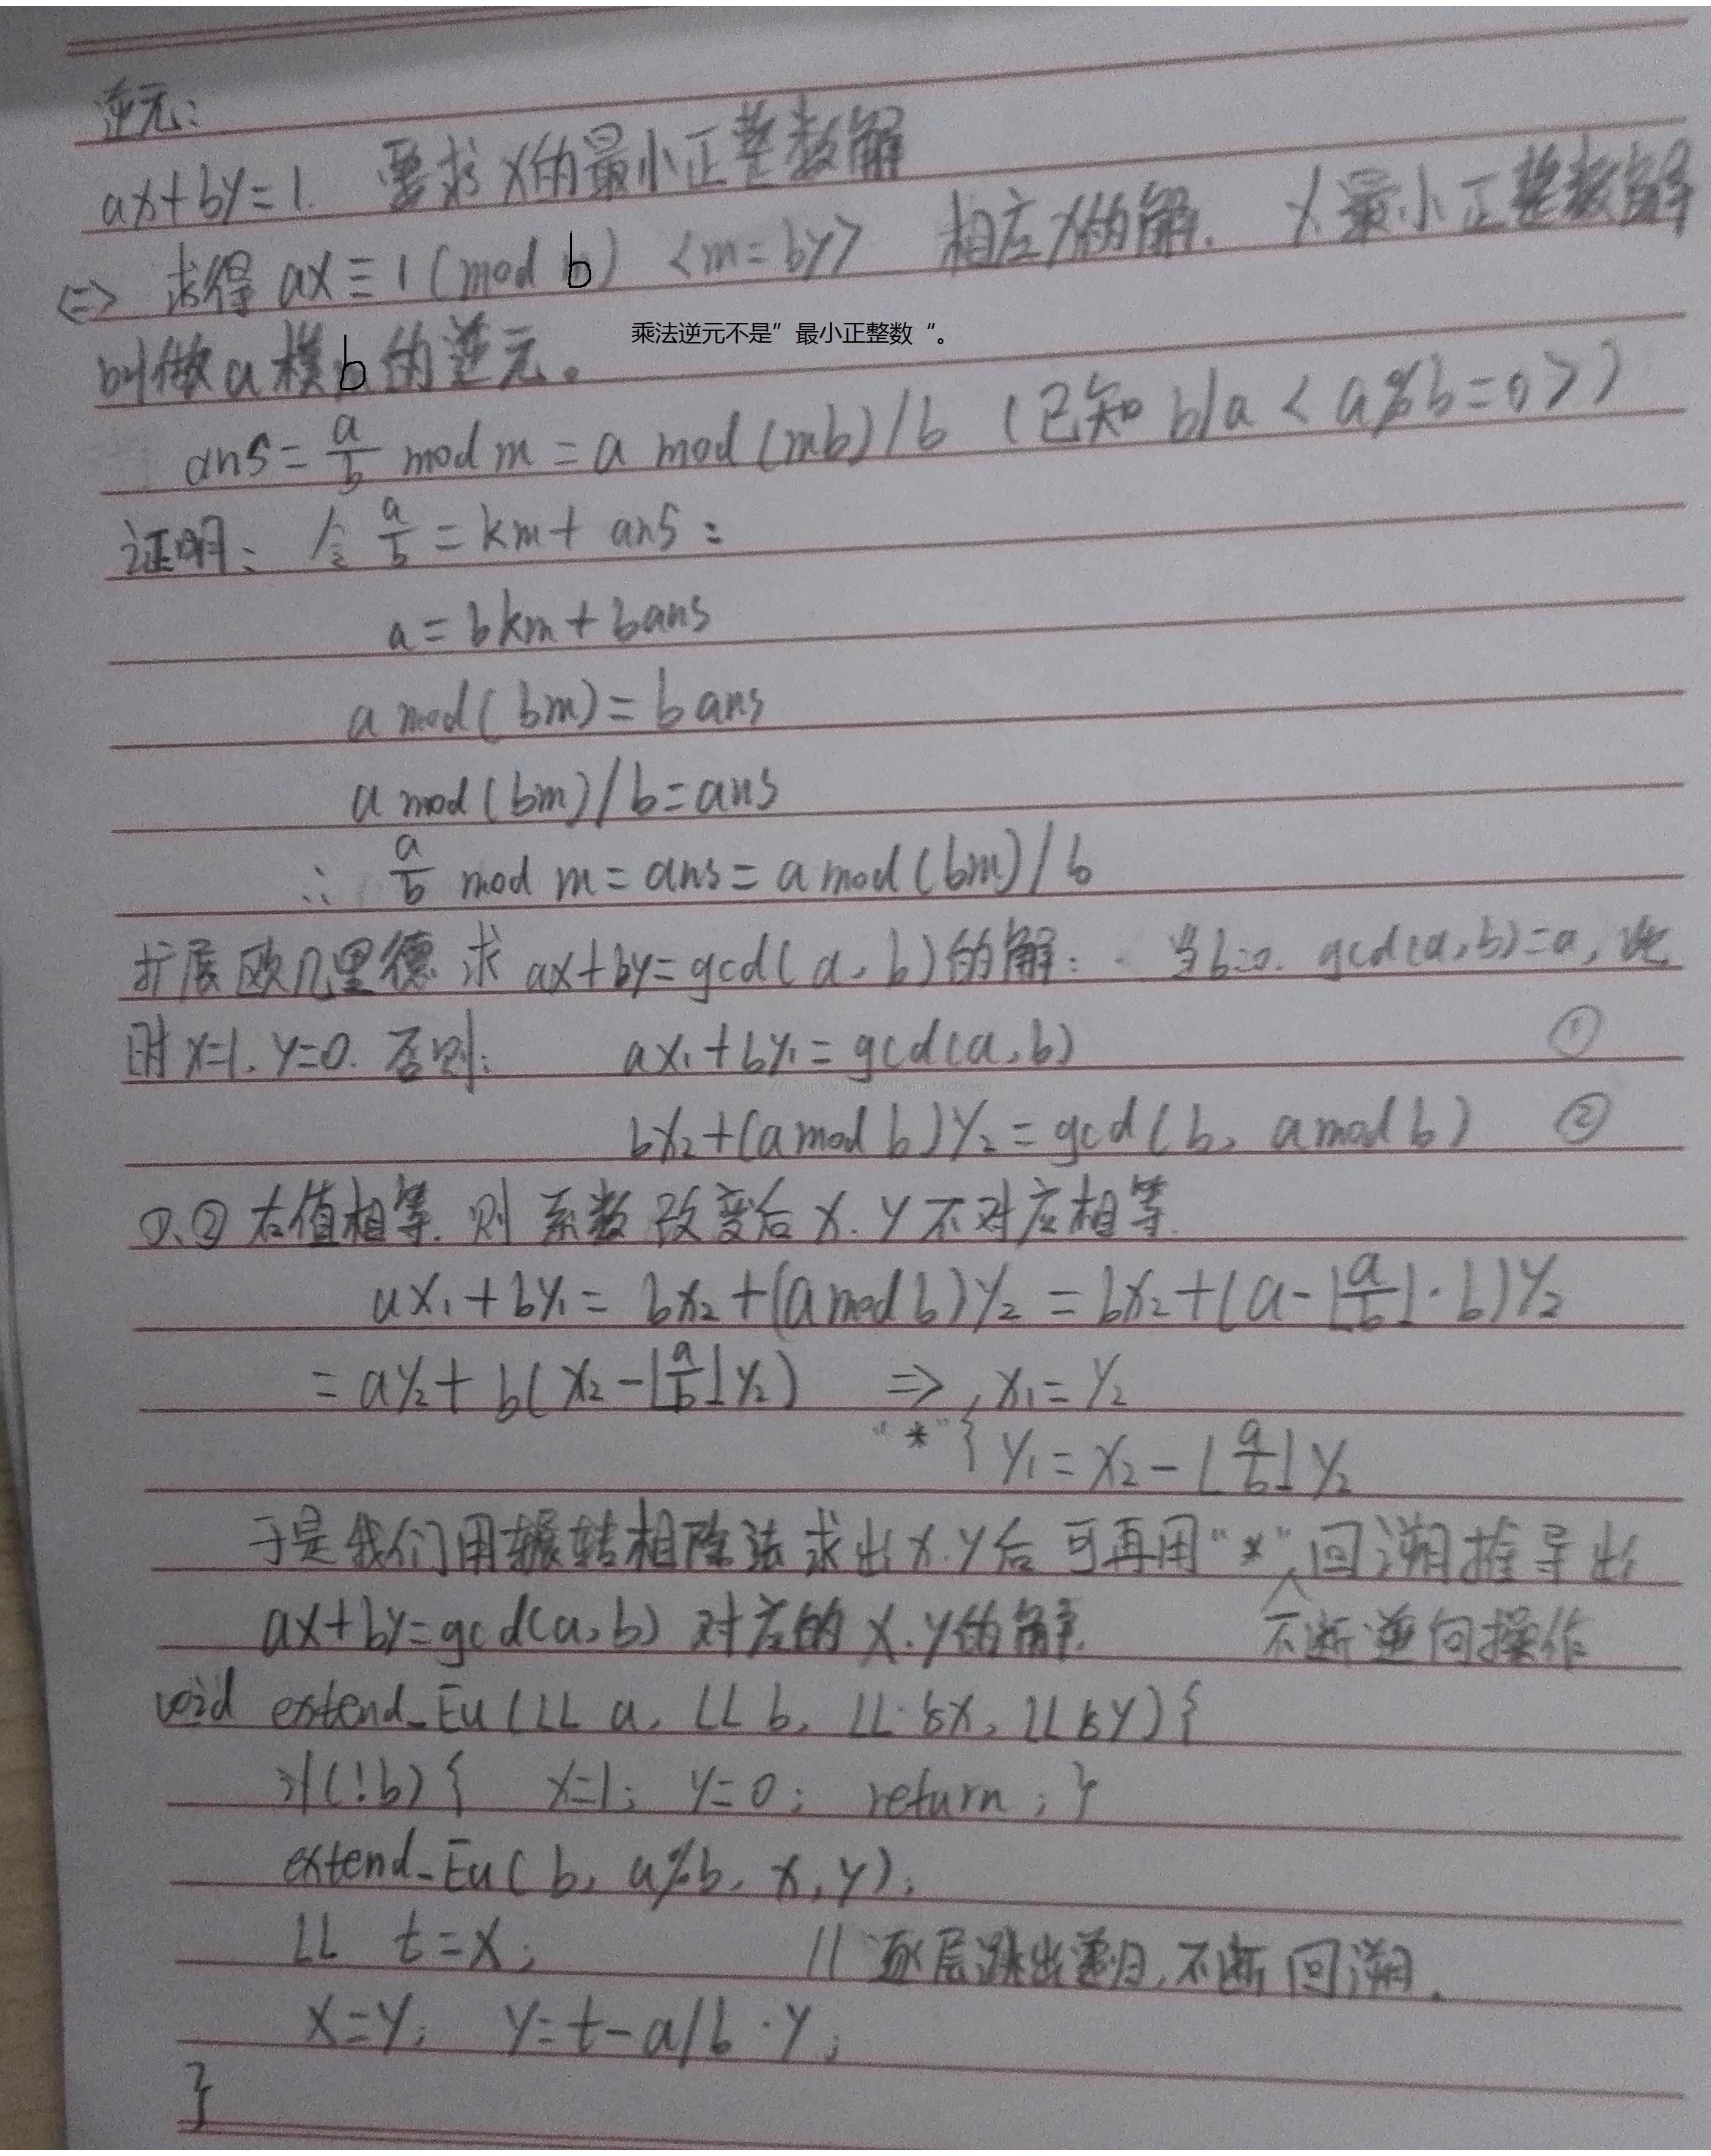 逆元：
ax+by=1. 要求x的最小正整数解
<=> 求得 ax≡1(mod b) <m=by> 相应x的解. x最小正整数解
叫做a模b的逆元。 乘法逆元不是”最小正整数“。
ans=\frac{a}{b} mod m = a mod (mb)/b (已知 b|a <a%b=0>)
证明：令 \frac{a}{b} = km+ans：
a=bkm+bans
a mod(bm)=bans
a mod(bm)/b=ans
∴ \frac{a}{b} mod m=ans=a mod(bm)/b
扩展欧几里德 求 ax+by=gcd(a,b)的解：当b=0. gcd(a,b)=a, 此
时x=1. y=0. 否则： ax₁+by₁=gcd(a,b) ①
bx₂+(a mod b)y₂=gcd(b, a mod b) ②
①、②右值相等. 则系数改变后x.y不对应相等.
ax₁+by₁=bx₂+(a mod b)y₂=bx₂+(a-⌊\frac{a}{b}⌋·b)y₂
=ay₂+b(x₂-⌊\frac{a}{b}⌋y₂) => x₁=y₂
"*"{ y₁=x₂-⌊\frac{a}{b}⌋y₂
于是我们用辗转相除法求出x.y后可再用"*"回溯推导出
ax+by=gcd(a,b)对应的x.y的解. 不断逆向操作
void extend_Eu(LL a, LL b, LL &x, LL &y){
if(!b){ x=1; y=0; return; }
extend_Eu(b, a%b, x, y);
LL t=x; //逐层跳出递归,不断回溯.
x=y; y=t-a/b·y;
}